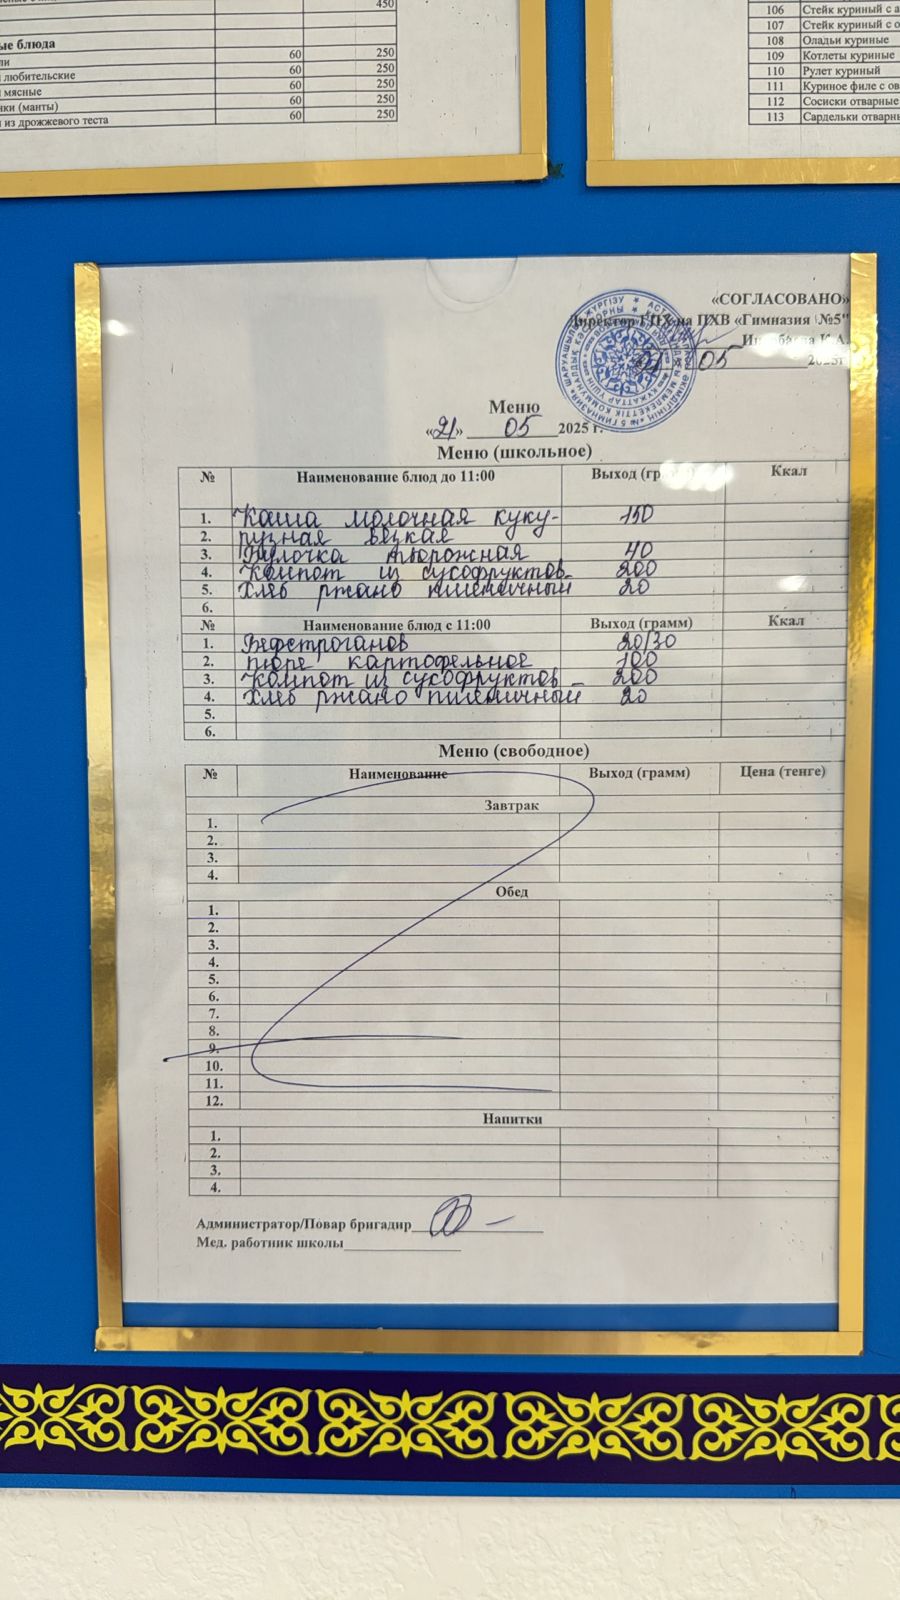 450
ые блюда
ли 60 250
любительские 60 250
мясные 60 250
нки (манты) 60 250
из дрожжевого теста 60 250
106 Стейк куриный с
107 Стейк куриный с
108 Оладьи куриные
109 Котлеты куриные
110 Рулет куриный
111 Куриное филе с ов
112 Сосиски отварные
113 Сардельки отварн
«СОГЛАСОВАНО»
Директор ГПХ на ПХВ «Гимназия №5"
И.А.
05 2025г
Меню
«21» 05 2025 г.
Меню (школьное)
№ Наименование блюд до 11:00 Выход (гр Ккал
1. Каша молочная куку- 150
2. рузная вязкая
3. Булочка творожная 40
4. Компот из сухофруктов 200
5. Хлеб ржано пшеничный 20
6.
№ Наименование блюд с 11:00 Выход (грамм) Ккал
1. Бефстроганов 20/30
2. пюре картофельное 100
3. Компот из сухофруктов 200
4. Хлеб ржано пшеничный 20
5.
6.
Меню (свободное)
№ Наименование Выход (грамм) Цена (тенге)
Завтрак
1.
2.
3.
4.
Обед
1.
2.
3.
4.
5.
6.
7.
8.
9.
10.
11.
12.
Напитки
1.
2.
3.
4.
Администратор/Повар бригадир
Мед. работник школы